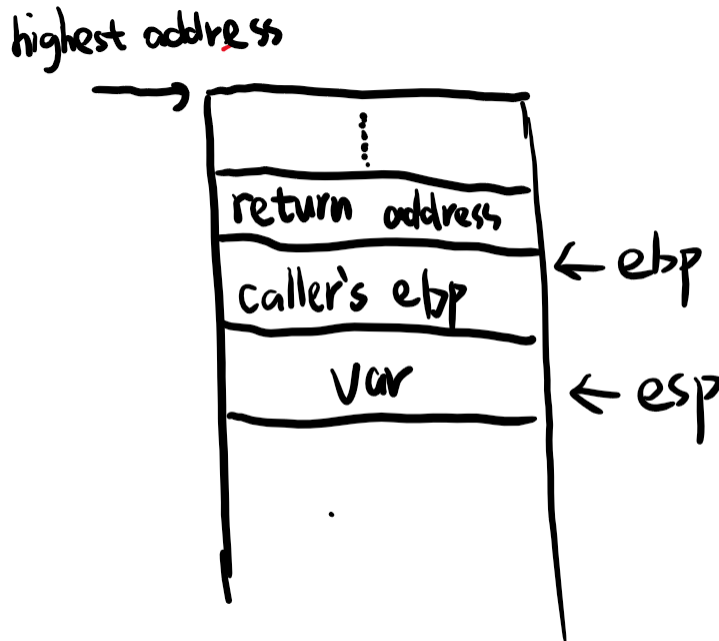 highest address
return address
← ebp
caller's ebp
var
← esp